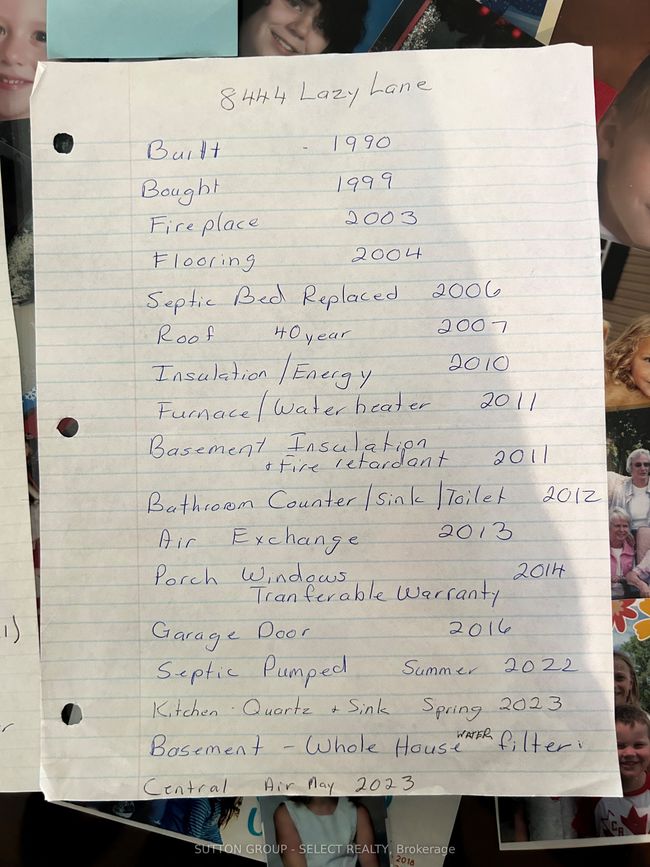 8444 Lazy Lane
Built - 1990
Bought 1999
Fireplace 2003
Flooring 2004
Septic Bed Replaced 2006
Roof 40 year 2007
Insulation/Energy 2010
Furnace/Water heater 2011
Basement Insulation
+ Fire retardant 2011
Bathroom Counter/Sink/Toilet 2012
Air Exchange 2013
Porch Windows 2014
Tranferable Warranty
Garage Door 2016
Septic Pumped Summer 2022
Kitchen - Quartz + Sink Spring 2023
Basement - Whole House WATER filter
Central Air May 2023
SUTTON GROUP - SELECT REALTY, Brokerage
2018